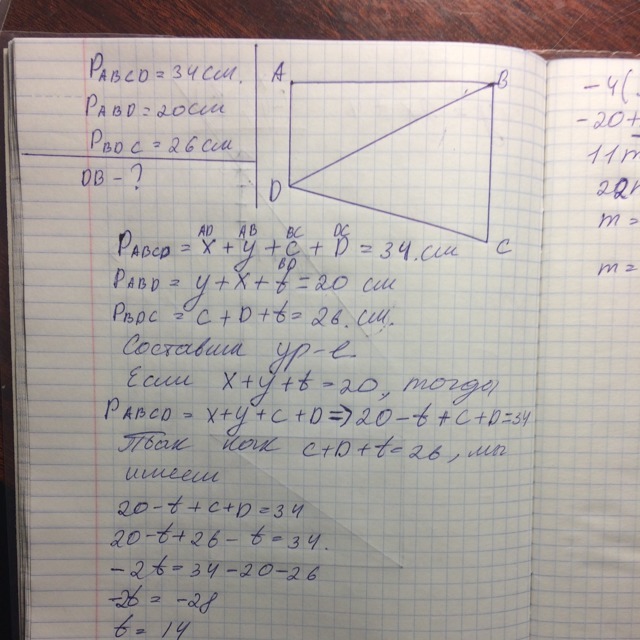 PABCD = 34 см.
PABD = 20 см
PBDC = 26 см
DB - ?
A
B
D
C
AD AB BC DC
PABCD = x + y + c + D = 34 см
BD
PABD = y + x + t = 20 см
PBDC = c + D + t = 26 см.
Составим ур-е.
Если x + y + t = 20, тогда
PABCD = x + y + c + D => 20 - t + c + D = 34
Так как c + D + t = 26, мы
имеем
20 - t + c + D = 34
20 - t + 26 - t = 34.
-2t = 34 - 20 - 26
-2t = -28
t = 14
-4(
-20+
11m
22
m =
m =